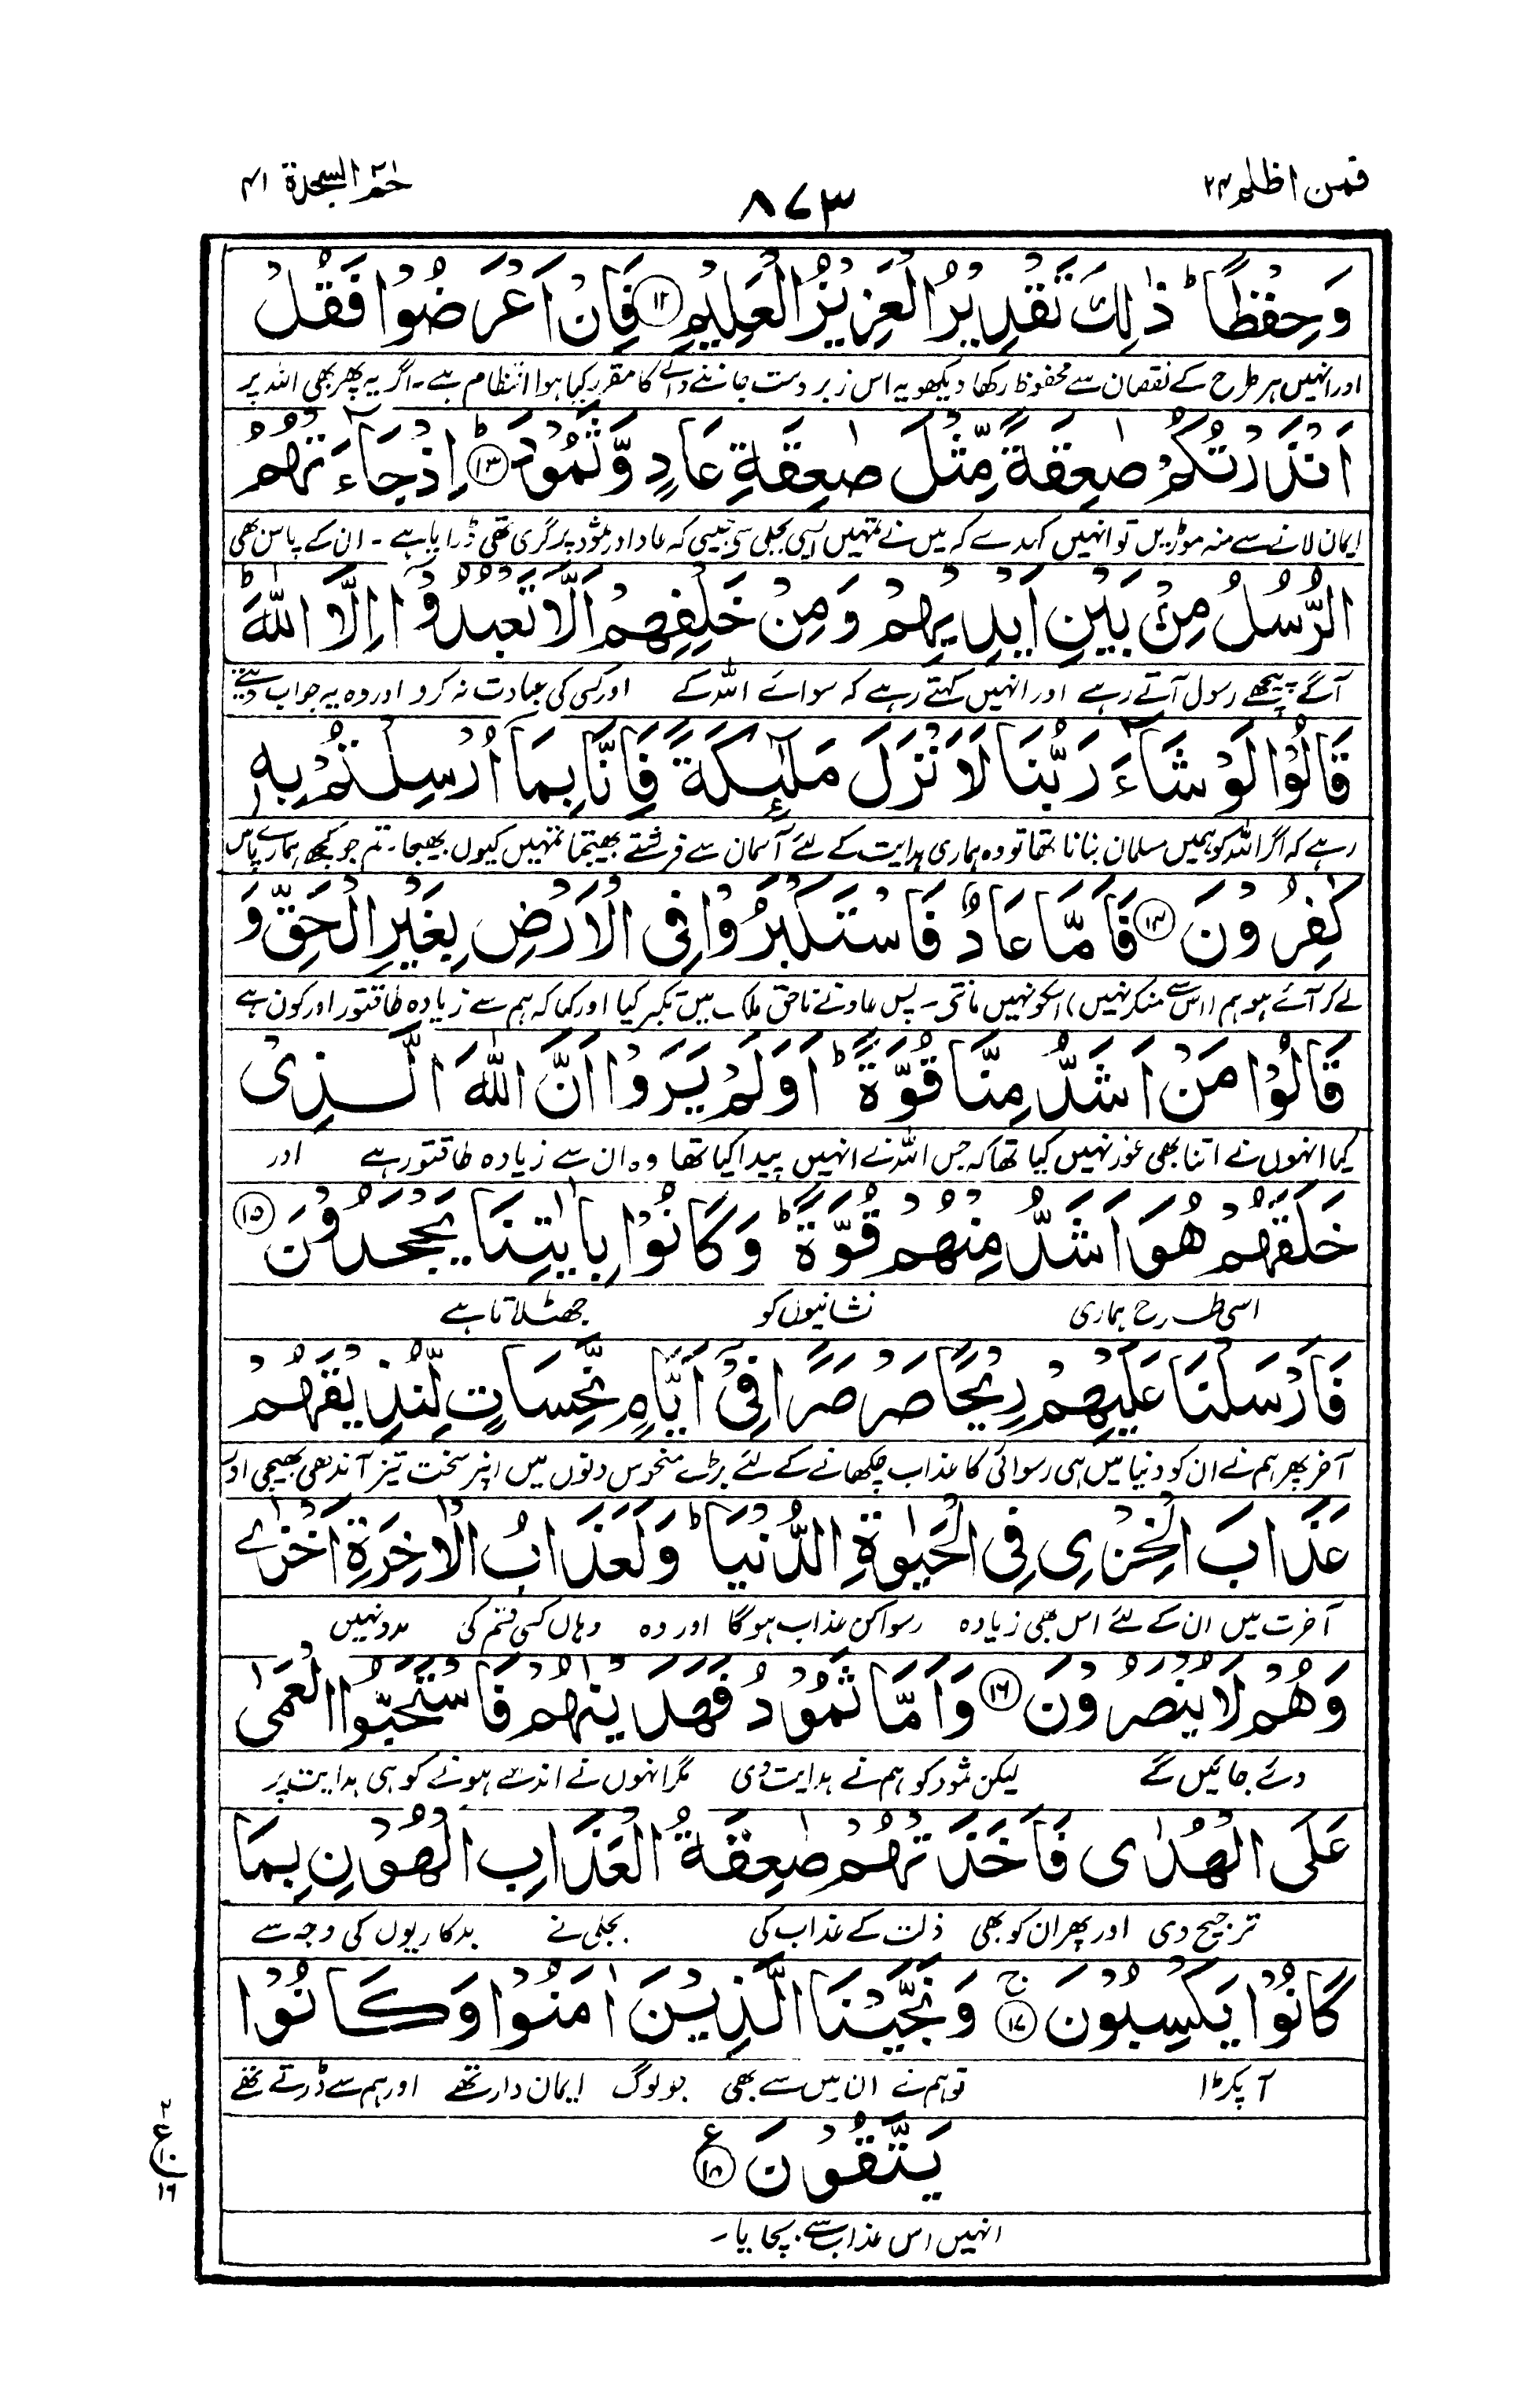 فمن اظلم ۲۴
۸۷۳
حٰمٓ السجدۃ ۴۱
وَحِفْظًا ؕ ذٰلِكَ تَقْدِيْرُ الْعَزِيْزِ الْعَلِيْمِ ⑫ فَاِنْ اَعْرَضُوْا فَقُلْ
اور انہیں ہر طرح کے نقصان سے محفوظ رکھا دیکھو یہ اس زبردست جاننے والے کا مقرر کیا ہوا انتظام ہے ۔ اگر یہ پھر بھی اللہ پر
اَنْذَرْتُكُمْ صٰعِقَةً مِّثْلَ صٰعِقَةِ عَادٍ وَّثَمُوْدَ ؕ ⑬ اِذْ جَآءَتْهُمُ
ایمان لانے سے منہ موڑیں تو انہیں کہدے کہ میں نے تمہیں ایسی بجلی سی جیسی کہ عاد اور ثمود پر گری تھی ڈرایا ہے ۔ ان کے پاس بھی
الرُّسُلُ مِنْۢ بَيْنِ اَيْدِيْهِمْ وَمِنْ خَلْفِهِمْ اَلَّا تَعْبُدُوْٓا اِلَّا اللّٰهَ ؕ
آگے پیچھے رسول آتے رہے اور انہیں کہتے رہے کہ سوائے اللہ کے اور کسی کی عبادت نہ کرو اور وہ یہ جواب دیتے
قَالُوْا لَوْ شَآءَ رَبُّنَا لَاَنْزَلَ مَلٰٓئِكَةً فَاِنَّا بِمَآ اُرْسِلْتُمْ بِهٖ
رہے کہ اگر اللہ کو ہمیں مسلمان بنانا تھا تو وہ ہماری ہدایت کے لئے آسمان سے فرشتے بھیجتا تمہیں کیوں بھیجا ۔ تم جو کچھ ہمارے پاس
كٰفِرُوْنَ ⑭ فَاَمَّا عَادٌ فَاسْتَكْبَرُوْا فِى الْاَرْضِ بِغَيْرِ الْحَقِّ وَ
لے کر آئے ہو ہم (اس سے منکر نہیں) اسکو نہیں مانتی ۔ پس عاد نے ناحق ملک میں تکبر کیا اور کہا کہ ہم سے زیادہ طاقتور اور کون ہے
قَالُوْا مَنْ اَشَدُّ مِنَّا قُوَّةً ؕ اَوَلَمْ يَرَوْا اَنَّ اللّٰهَ الَّذِىْ
کیا انہوں نے اتنا بھی غور نہیں کیا تھا کہ جس اللہ نے انہیں پیدا کیا تھا وہ ان سے زیادہ طاقتور ہے اور
خَلَقَهُمْ هُوَ اَشَدُّ مِنْهُمْ قُوَّةً ؕ وَكَانُوْا بِاٰيٰتِنَا يَجْحَدُوْنَ ⑮
اسی طرح ہماری نشانیوں کو جھٹلاتا ہے
فَاَرْسَلْنَا عَلَيْهِمْ رِيْحًا صَرْصَرًا فِىْٓ اَيَّامٍ نَّحِسَاتٍ لِّنُذِيْقَهُمْ
آخر پھر ہم نے ان کو دنیا میں ہی رسوائی کا عذاب چکھانے کے لئے بڑے منحوس دنوں میں ان پر سخت تیز آندھی بھیجی اور
عَذَابَ الْخِزْىِ فِى الْحَيٰوةِ الدُّنْيَا ؕ وَلَعَذَابُ الْاٰخِرَةِ اَخْزٰے
آخرت میں ان کے لئے اس بھی زیادہ رسوا کن عذاب ہوگا اور وہ وہاں کسی قسم کی مدد نہیں
وَهُمْ لَا يُنْصَرُوْنَ ⑯ وَاَمَّا ثَمُوْدُ فَهَدَيْنٰهُمْ فَاسْتَحَبُّوا الْعَمٰى
دئے جائیں گے لیکن ثمود کو ہم نے ہدایت دی مگر انہوں نے اندھے ہونے کو ہی ہدایت پر
عَلَى الْهُدٰى فَاَخَذَتْهُمْ صٰعِقَةُ الْعَذَابِ الْهُوْنِ بِمَا
ترجیح دی اور پھر ان کو بھی ذلت کے عذاب کی بجلی نے بدکاریوں کی وجہ سے
كَانُوْا يَكْسِبُوْنَ ۚ ⑰ وَنَجَّيْنَا الَّذِيْنَ اٰمَنُوْا وَكَانُوْا
آ پکڑا تو ہم نے ان میں سے بھی جو لوگ ایمان دار تھے اور ہم سے ڈرتے تھے
يَتَّقُوْنَ ⑱ ع
انہیں اس عذاب سے بچا یا ۔
۲
ع
۱۰
۱۶